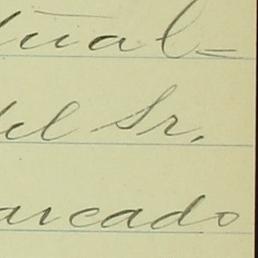 tual-
del Sr.
arcado